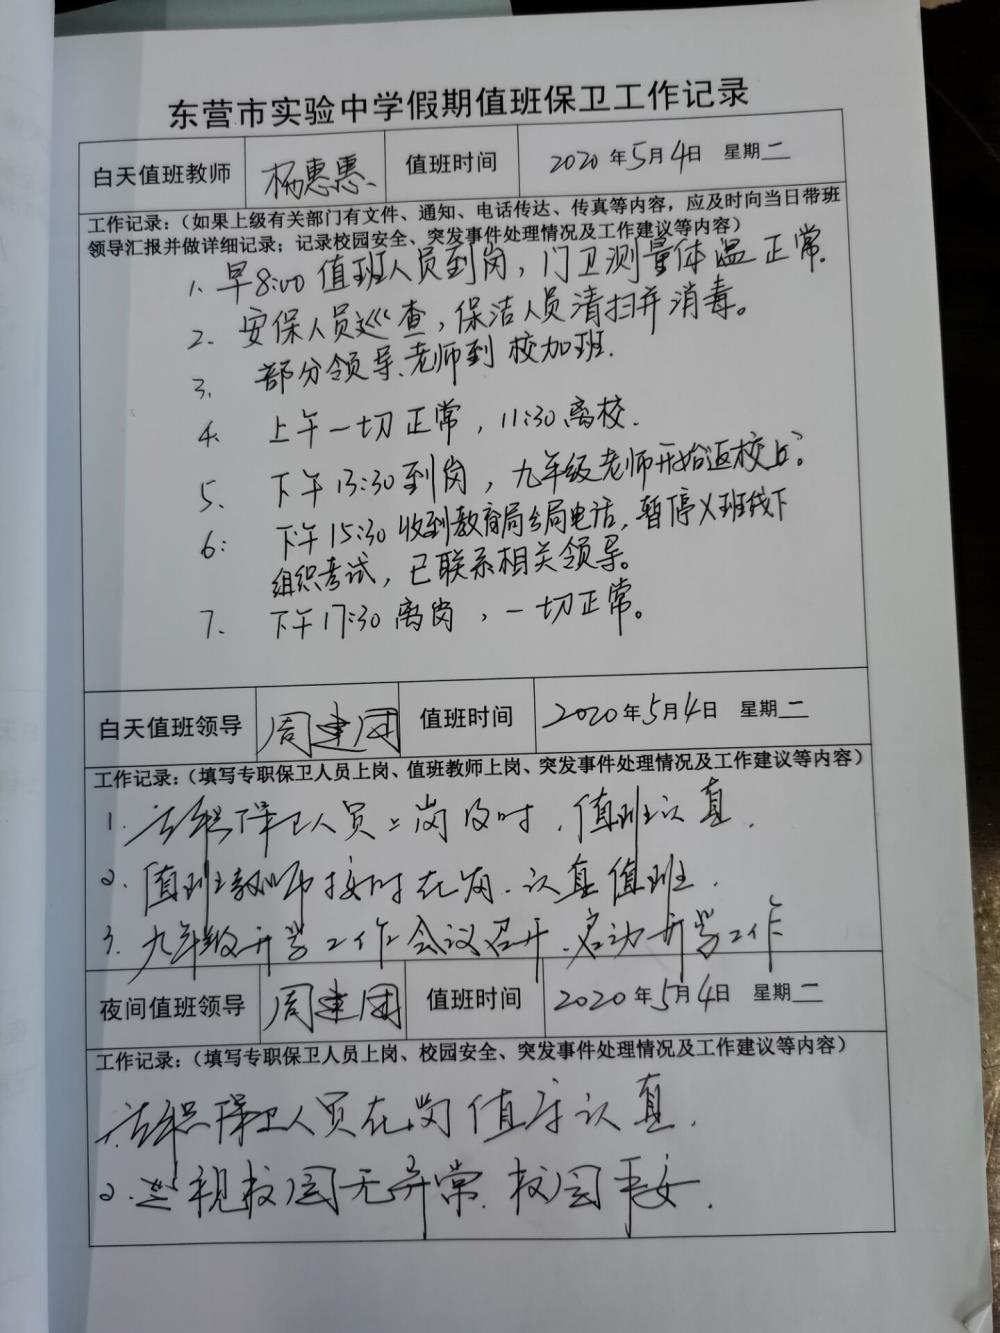 东营市实验中学假期值班保卫工作记录
白天值班教师 杨惠惠 值班时间 2020年5月4日 星期二
工作记录：（如果上级有关部门有文件、通知、电话传达、传真等内容，应及时向当日带班
领导汇报并做详细记录；记录校园安全、突发事件处理情况及工作建议等内容）
1. 早8:00值班人员到岗，门卫测量体温正常.
2. 安保人员巡查，保洁人员清扫并消毒。
3. 部分领导、老师到校加班.
4. 上午一切正常，11:30离校.
5. 下午13:30到岗，九年级老师开始返校
6: 下午15:30收到教育局电话，暂停 班线下
组织考试，已联系相关领导。
7. 下午17:30离岗，一切正常。
白天值班领导 周建团 值班时间 2020年5月4日 星期二
工作记录：（填写专职保卫人员上岗、值班教师上岗、突发事件处理情况及工作建议等内容）
1. 保卫人员上岗及时，值班认真.
2. 值班教师按时在岗、认真值班.
3. 九年级开学工作会议召开、启动开学工作
夜间值班领导 周建团 值班时间 2020年5月4日 星期二
工作记录：（填写专职保卫人员上岗、校园安全、突发事件处理情况及工作建议等内容）
1. 保卫人员在岗值守认真.
2. 巡视校园无异常.校园平安.